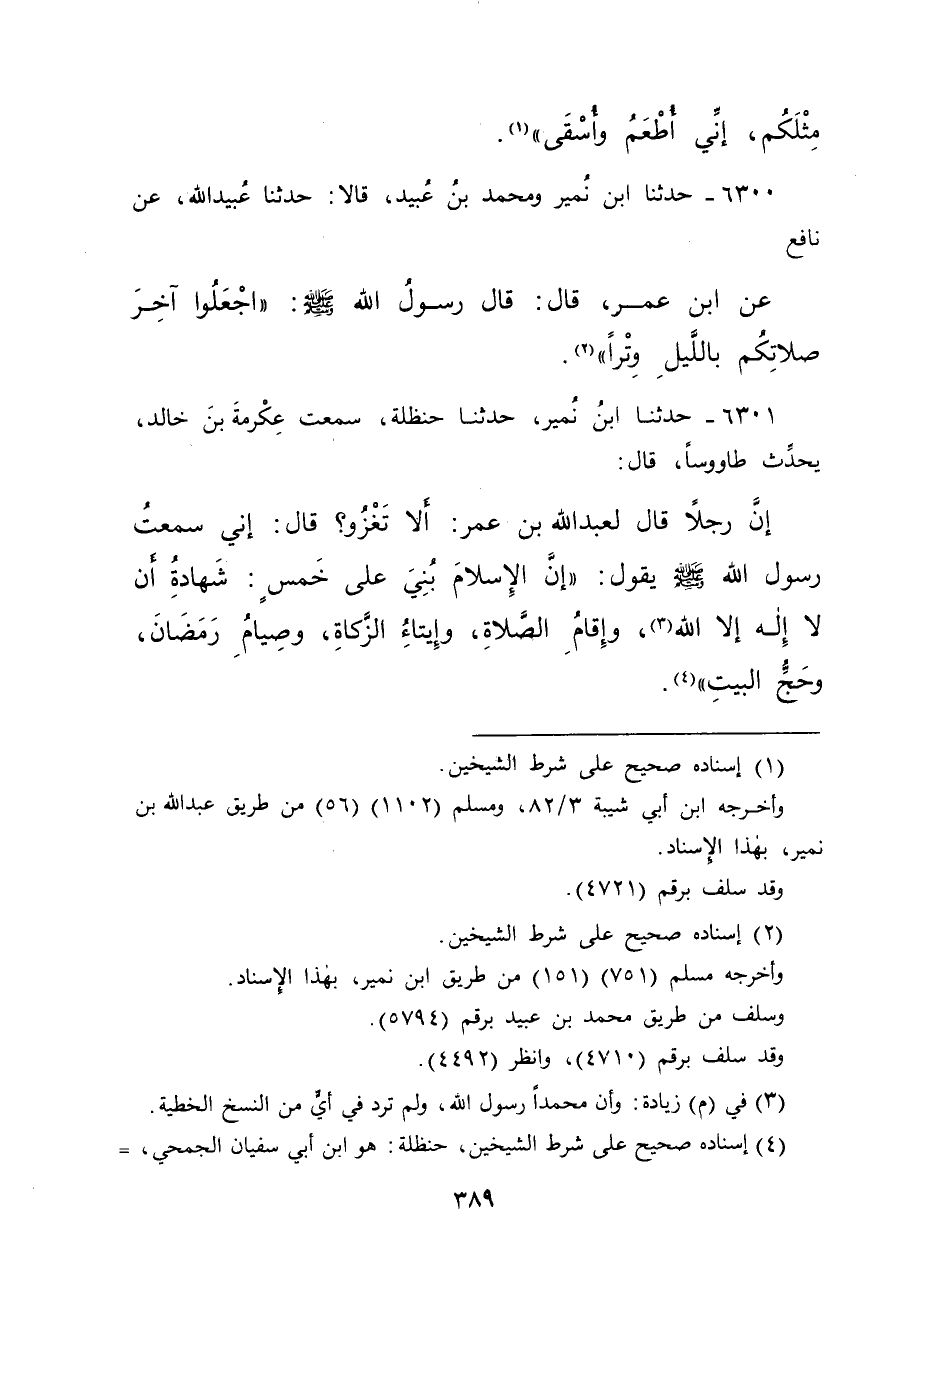 مِثْلَكُم، إنِّي أُطْعَمُ وأُسْقَى»(١).
٦٣٠٠ - حدثنا ابن نُمير ومحمد بنُ عُبيد، قالا: حدثنا عُبيدالله، عن
نافع
عن ابن عمـر، قال: قال رسـولُ الله ﷺ: «اجْعَلُوا آخِـرَ
صلاتِكُم باللَّيلِ وِتْراً»(٢).
٦٣٠١ - حدثنـا ابنُ نُمير، حدثنـا حنظلة، سمعت عِكْرمةَ بنَ خالد،
يحدِّث طاووساً، قال:
إنَّ رجلاً قال لعبدالله بن عمر: أَلا تَغْزُو؟ قال: إني سمعتُ
رسول الله ﷺ يقول: «إنَّ الإِسلامَ بُنِيَ على خَمسٍ: شَهادةُِ أَن
لا إِلٰـه إلا الله(٣)، وإِقامُِ الصَّلاةِ، وإِيتاءُِ الزَّكاةِ، وصِيامُِ رَمَضَانَ،
وحَجُِّ البيتِ»(٤).
(١) إسناده صحيح على شرط الشيخين.
وأخـرجه ابن أبي شيبة ٨٢/٣، ومسلم (١١٠٢) (٥٦) من طريق عبدالله بن
نمير، بهٰذا الإِسناد.
وقد سلف برقم (٤٧٢١).
(٢) إسناده صحيح على شرط الشيخين.
وأخرجه مسلم (٧٥١) (١٥١) من طريق ابن نمير، بهٰذا الإِسناد.
وسلف من طريق محمد بن عبيد برقم (٥٧٩٤).
وقد سلف برقم (٤٧١٠)، وانظر (٤٤٩٢).
(٣) في (م) زيادة: وأن محمداً رسول الله، ولم ترد في أيٍّ من النسخ الخطية.
(٤) إسناده صحيح على شرط الشيخين، حنظلة: هو ابن أبي سفيان الجمحي، =
٣٨٩